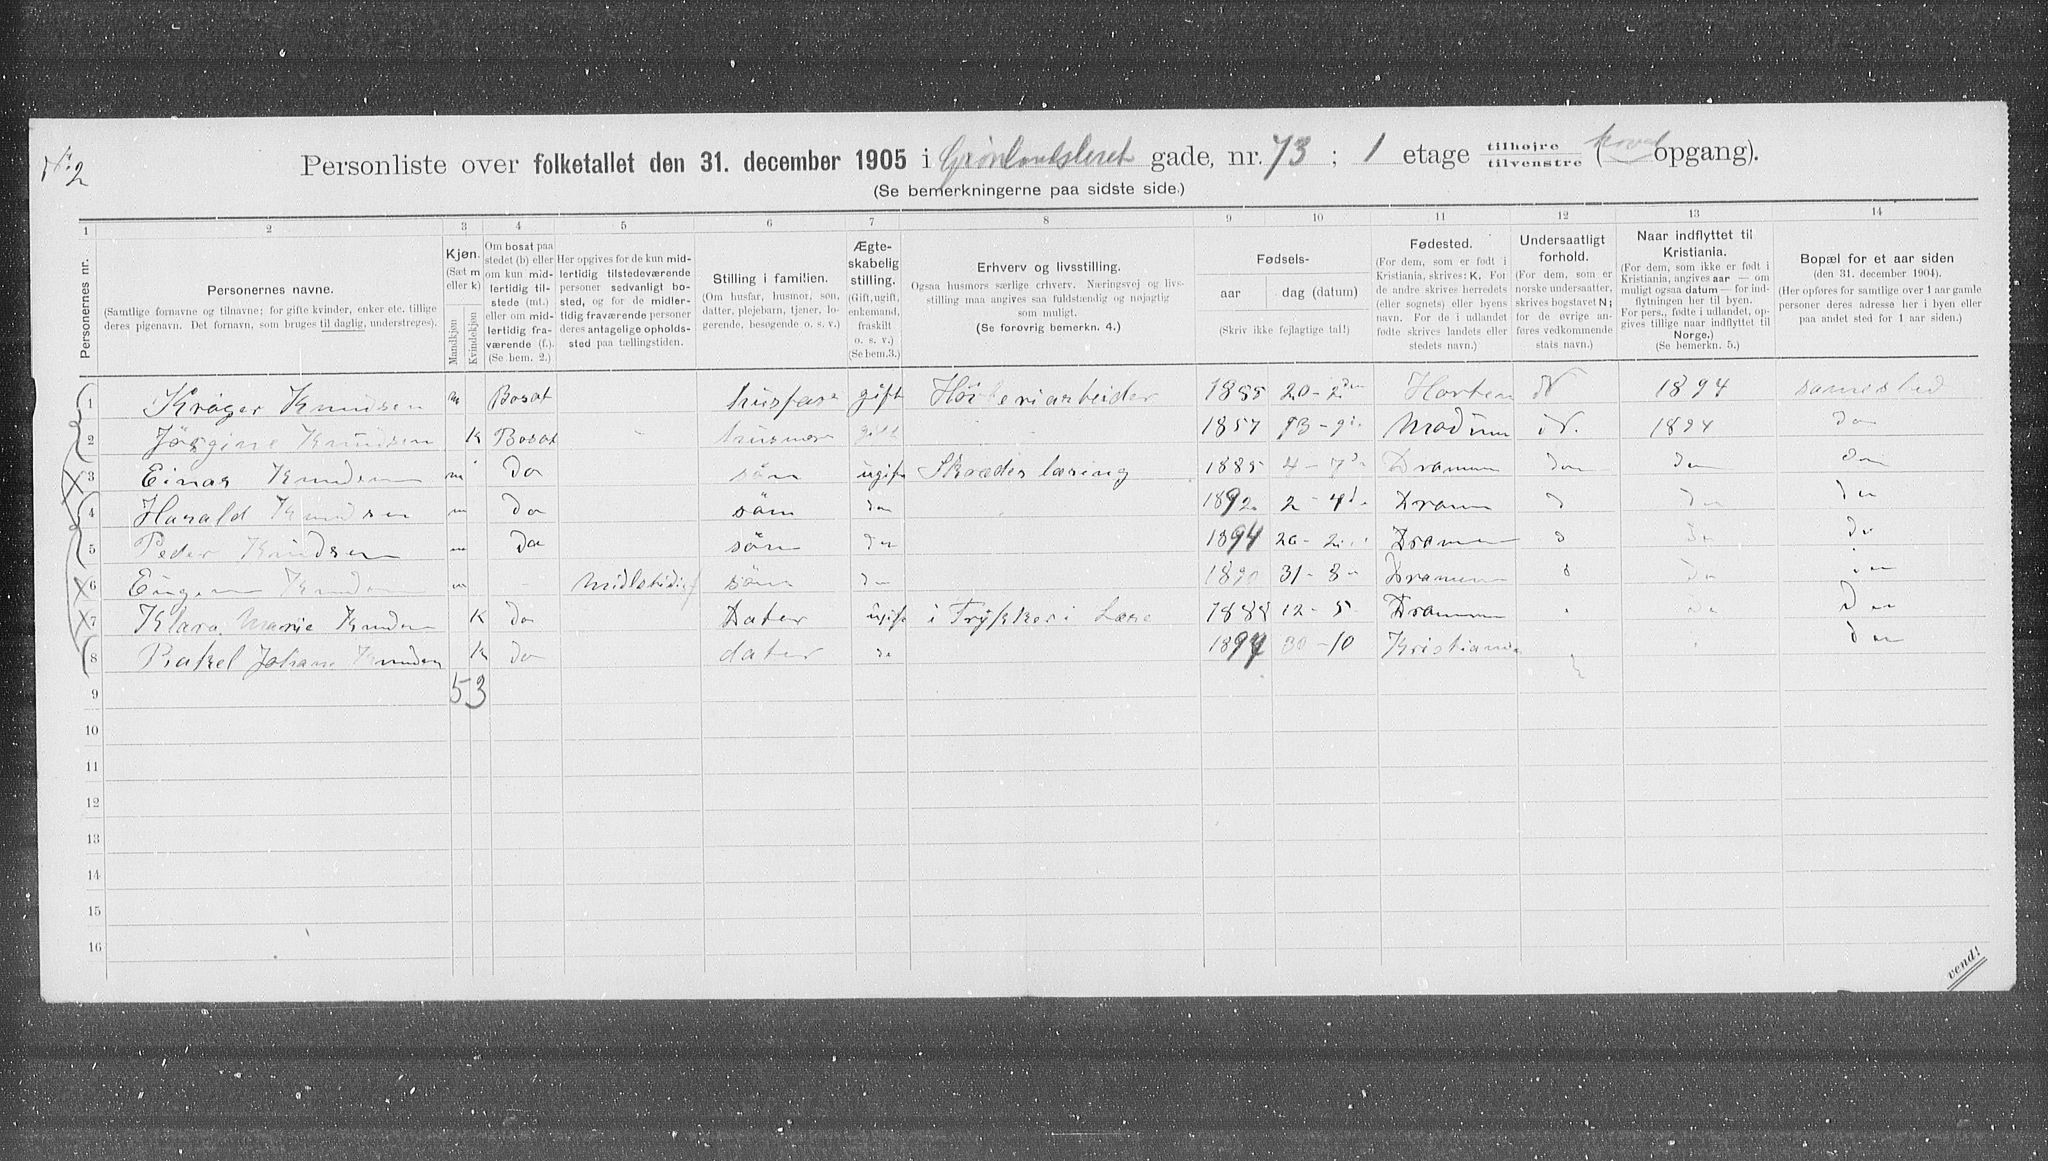 No 2
Personliste over folketallet den 31. december 1905 i Grønlandsleret gade, nr. 73; 1 etage tilhøjre tilvenstre (hoved opgang).
(Se bemerkningerne paa sidste side.)
1 2 3 4 5 6 7 8 9 10 11 12 13 14
Personernes nr.
Personernes navne.
(Samtlige fornavne og tilnavne; for gifte kvinder, enker etc. tillige deres pigenavn. Det fornavn, som bruges til daglig, understreges).
Kjøn.
(Sæt m eller k)
Mandkjøn
Kvindekjøn
Om bosat paa stedet (b) eller om kun midlertidig tilstede (mt.) eller om midlertidig fraværende (f.). (Se bem. 2.)
Her opgives for de kun midlertidig tilstedeværende personer sedvanligt bosted, og for de midlertidig fraværende personer deres antagelige opholdssted paa tællingstiden.
Stilling i familien.
(Om husfar, husmor, søn, datter, plejebarn, tjener, logerende, besøgende o. s. v.)
Ægteskabelig stilling.
(Gift, ugift, enkemand, fraskilt o. s. v.) (Se bem. 3.)
Erhverv og livsstilling.
Ogsaa husmors særlige erhverv. Næringsvej og livsstilling maa angives saa fuldstændig og nøjagtig som muligt.
(Se forøvrig bemerkn. 4.)
Fødsels-
aar
dag (datum)
(Skriv ikke fejlagtige tal!)
Fødested.
(For dem, som er født i Kristiania, skrives: K. For de andre skrives herredets (eller sognets) eller byens navn. For de i udlandet fødte skrives landets eller stedets navn.)
Undersaatligt forhold.
(For dem, som er norske undersaatter, skrives bogstavet N; for de øvrige anføres vedkommende stats navn.)
Naar indflyttet til Kristiania.
(For dem, som ikke er født i Kristiania, angives aar — om muligt ogsaa datum — for indflytningen her til byen. For pers., fødte i udlandet, opgives tillige naar indflyttet til Norge.)
(Se bemerkn. 5.)
Bopæl for et aar siden
(den 31. december 1904).
(Her opføres for samtlige over 1 aar gamle personer deres adresse her i byen eller paa andet sted for 1 aar siden.)
1 Krøger Knudsen m Bosat husfar gift 1855 20-2den Horten N 1894 samested
2 Jørgine Knudsen K Bosat husmor gift 1857 13-9 Modum N. 1894 do
3 Einar Knudsen m do søn ugift Skræder læring 1885 4-7d Dramen do do do
4 Harald Knudsen m do søn do 1892 2-4d Dramen do do
5 Peder Knudsen m do søn do 1894 20-2 Dramen do do
6 Eugen Knudsen m - Midlertidig søn do 1890 31-8 Dramen do do
7 Klara Marije Knudsen K do Dater ugift i Trykkeri Lære 1888 12-5 Dramen do do
8 Rakel Johane Knudsen K do dater do 1897 30-10 Kristiania do
9 5 3
10
11
12
13
14
15
16
vend!